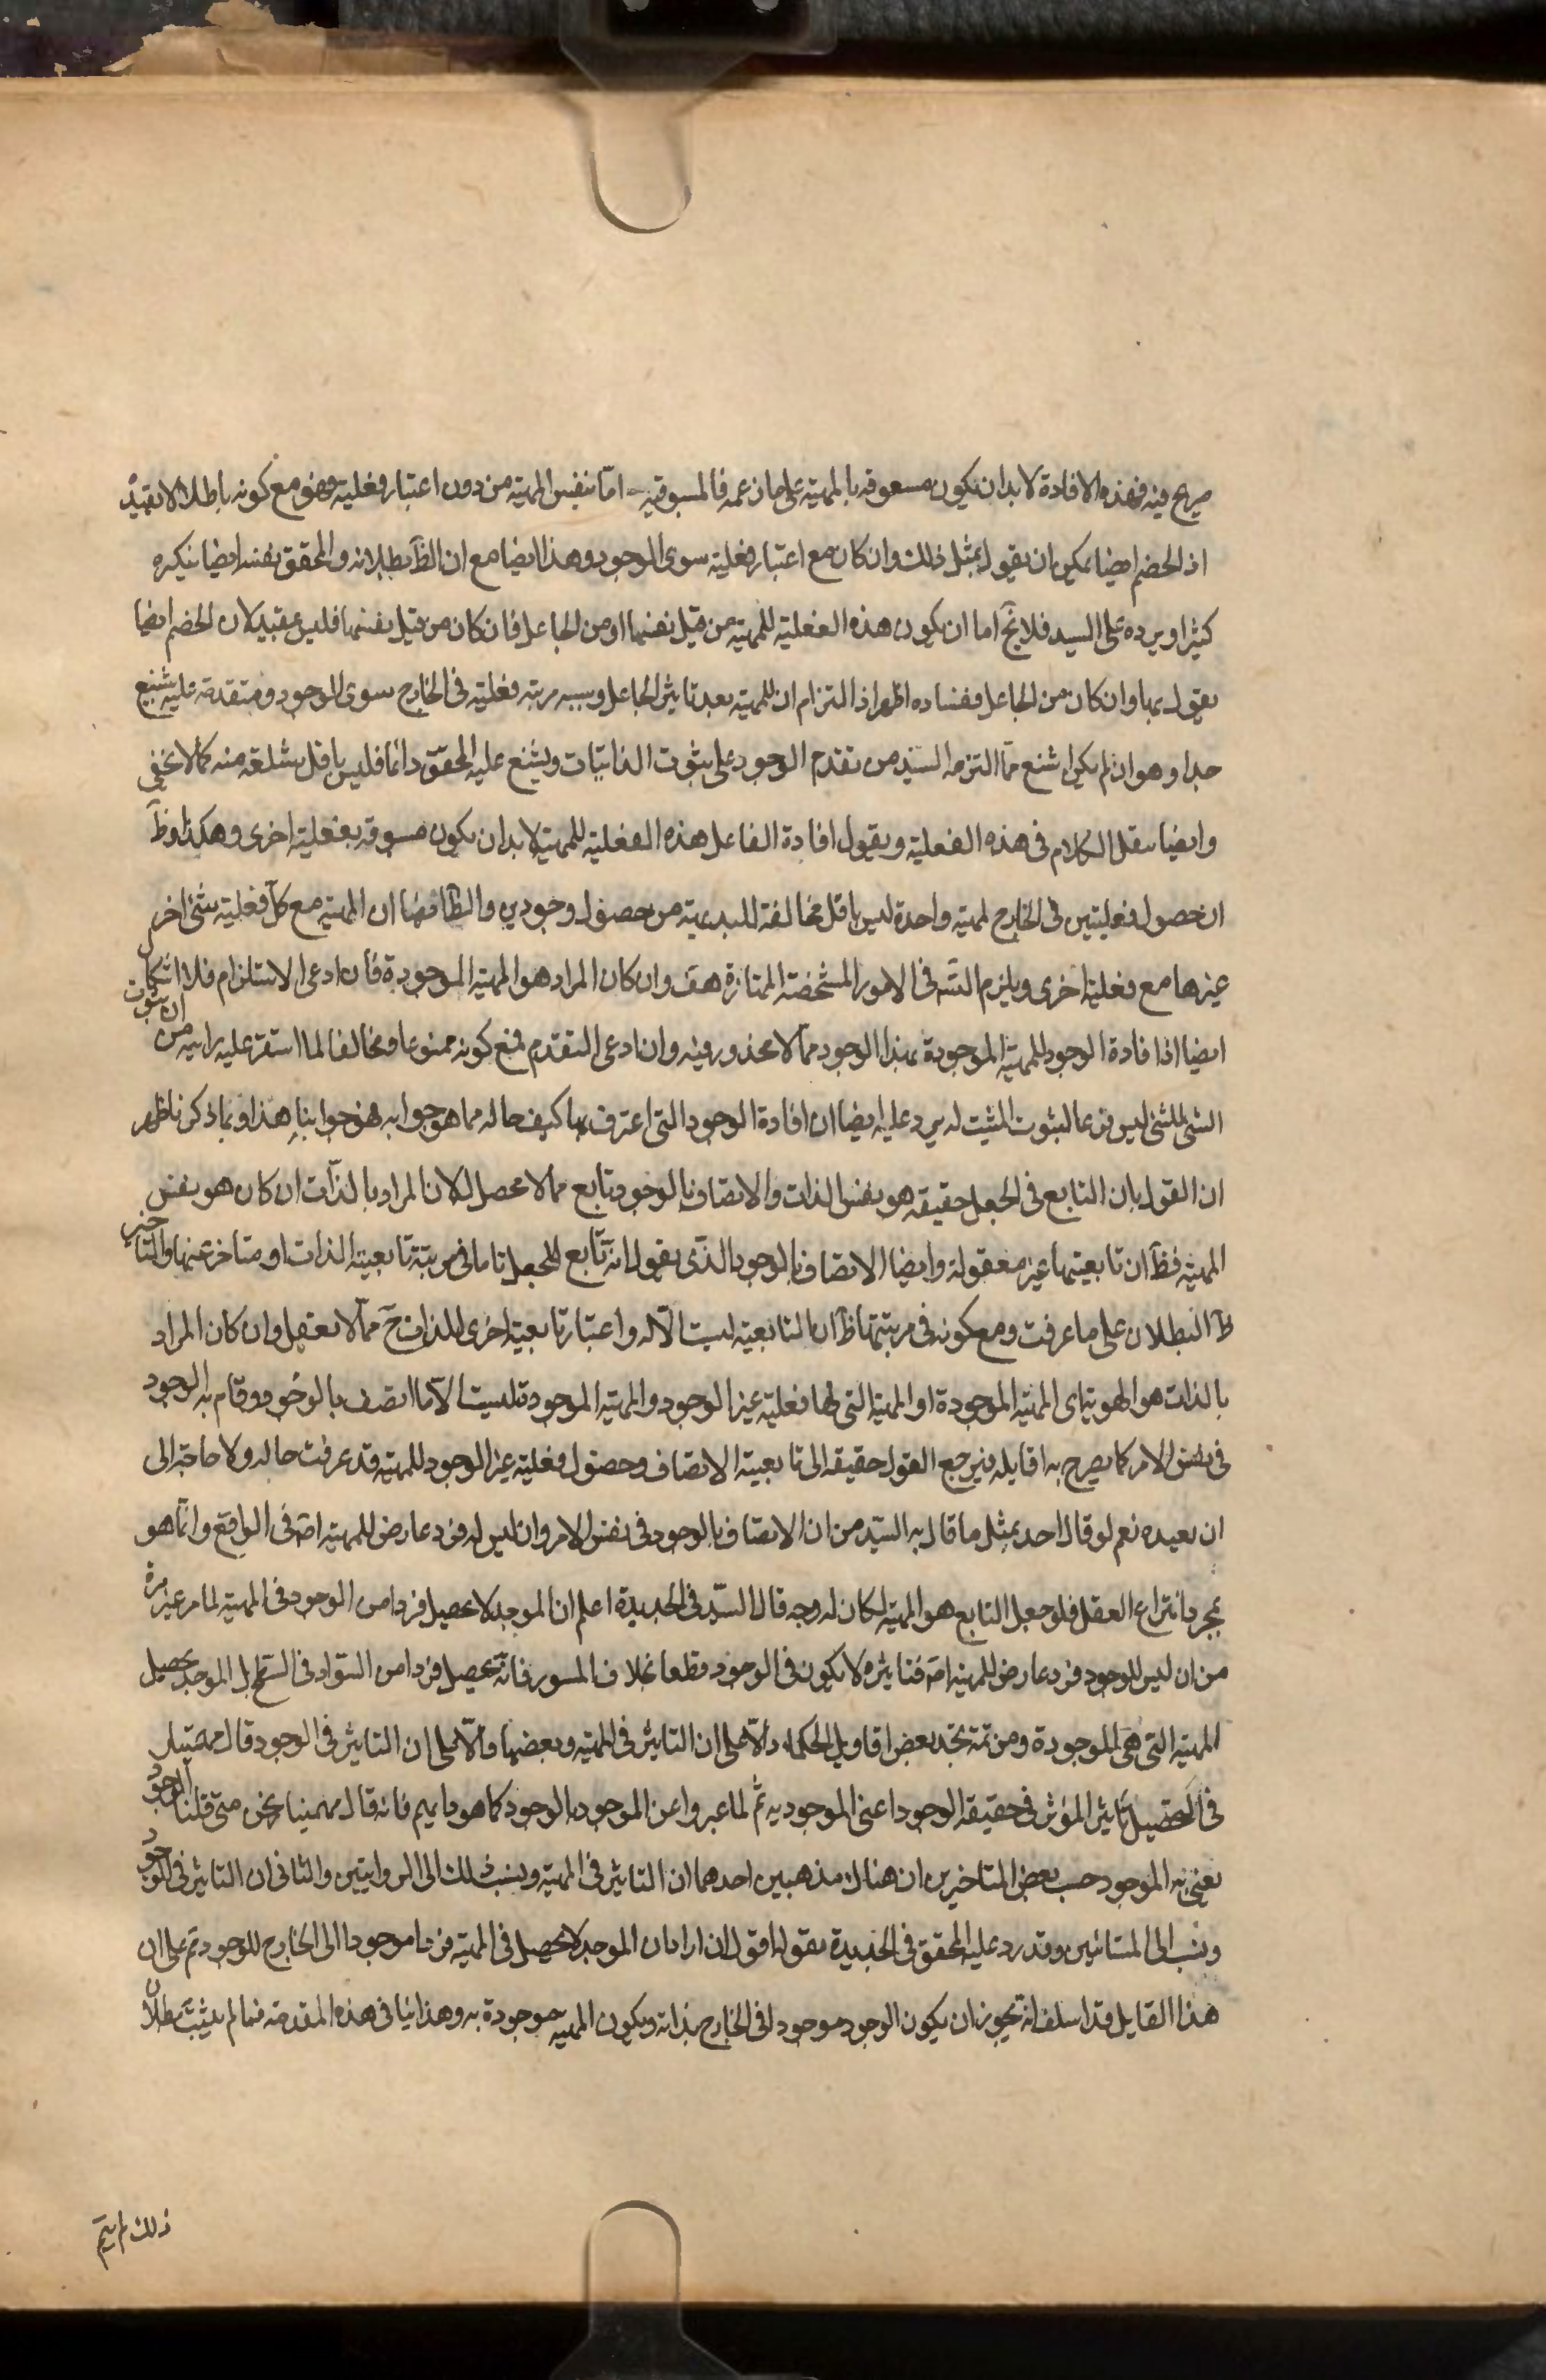 صريح فيه فهذه الافادة لا بد ان يكون مسبوقه بالمهية على ما زعمه فالمسبوقية اما بنفس المهية من دون اعتبار فعلية وهو مع كونه باطلا لا يفيد
اذ الخصم ايضا يمكن ان يقول بمثل ذلك وان كان مع اعتبار فعلية سوى الوجود وهذا ايضا مع ان الظ بطلانه والمحقق نفسه ايضا ينكره
كثيرا ويرده على السيد فلا يخ اما ان يكون هذه الفعلية للمهية من قبل نفسها او من الجاعل فان كان من قبل نفسها فليس بمفيد لان الخصم ايضا
يقول بها وان كان من الجاعل ففساده اظهر اذ التزام ان للمهية بعد تاثير الجاعل وسببه مرتبه فعلية في الخارج سوى الوجود ومتقدمة عليه شنيع
جدا وهو ان لم يكن اشنع مما التزمه السيد من تقدم الوجود على ثبوت الذاتيات ويشنع عليه المحقق دائما فليس باقل شناعة منه كما لا يخفى
وايضا ننقل الكلام في هذه الفعلية ونقول افادة الفاعل هذه الفعلية للمهية لا بد ان يكون مسبوقه بفعلية اخرى وهكذا وظ
ان حصول فعليتين في الخارج لمهية واحدة ليس باقل مخالفة للبديهية من حصول وجودين والظ ايضا ان المهية مع كل فعلية شئ اخر
غيرها مع فعلية اخرى ويلزم التسه في الامور المشخصة الممتازة هف وان كان المراد هو المهية الموجودة فان ادعى الاستلزام فلا اشكال
ايضا اذ افادة الوجود للمهية الموجودة بهذا الوجود مما لا محذور فيه وان ادعى التقدم فمع كونه ممنوعا ومخالفا لما استقر عليه رايه من ان ثبوت
الشئ للشئ ليس فرعا لثبوت المثبت له يرد عليه ايضا ان افادة الوجود التي اعترف بها كيف حاله مما هو جوابه فهو جوابنا هذا وبما ذكرنا ظهر
ان القول بان التابع في الجعل حقيقه هو نفس الذات والاتصاف بالوجود تابع مما لا محصل له لان المراد بالذات ان كان هو نفس
المهية فظ ان تابعيتها غير معقولة وايضا الاتصاف بالوجود الذي يقول انه تابع للجعل اما في مرتبة تابعية الذات او متاخر عنها والتاخير
ظ البطلان على ما عرفت ومع كونه في مرتبتها ظ ان التابعية ليست الا له واعتبار تابعية اخرى للذات ح مما لا يعقل وان كان المراد
بالذات هو الهوية اى المهية الموجودة او المهية التي لها فعلية غير الوجود والمهية الموجودة ليست الا ما اتصف بالوجود وقام به الوجود
في نفس الامر كما يصرح به قايله فيرجع القول حقيقه الى تابعية الاتصاف وحصول فعلية غير الوجود للمهية قد عرفت حاله ولا حاجة الى
ان نعيده نعم لو قال احد بمثل ما قال به السيد من ان الاتصاف بالوجود في نفس الامر وان ليس له فرد عارض للمهية اصه في الواقع وانما هو
بمجرد انتزاع العقل فلو جعل التابع هو المهية لكان له وجه قال السيد في الجديدة اعلم ان الموجد لا يحصل فردا من الوجود في المهية لما مر غير مرة
من ان ليس للوجود فرد عارض للمهية اصه فتاثيره لا يكون في الوجود قطعا بخلاف المسود فانه يحصل فردا من السواد في السطح بل الموجد يحصل
المهية التي هى الموجودة ومن ثمة تجد بعض اقاويل الحكماء دالا على ان التاثير في المهية وبعضها دالا على ان التاثير في الوجود قال بهمنيار
في التحصيل تاثير المؤثر في حقيقه الوجود اعنى الموجوديه ثم لما عبروا عن الموجود بالوجود كما هو دابهم فانه قال بهمنيار نحن متى قلنا الوجود
نعنى به الموجود حسب بعض المتاخرين ان هناك مذهبين احدهما ان التاثير في المهية وينسب ذلك الى الرواقيين والثانى ان التاثير في الوجود
وينسب الى المشائين وقد رد عليه المحقق في الجديدة بقوله اقول ان اراد ان الموجد لا يحصل في المهية فردا موجودا في الخارج للوجود تم على ان
هذا القايل قد اسلف انه يجوز ان يكون الوجود موجودا في الخارج بذاته ويكون المهية موجودة به وهذا ينافى هذه المقدمة فما لم يثبت بطلان
ذلك لم يتم